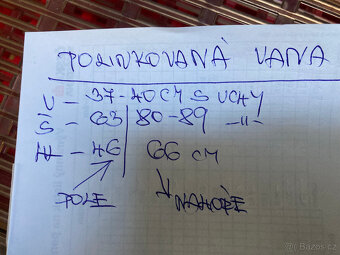 POZINKOVANÁ VANA
V - 37-40CM S UCHY
Š - 63 80-89 -"-
H - 46 66 CM
DOLE NAHOŘE
Bazoš.cz